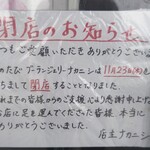 閉店のお知らせ
いつもご愛顧いただき
ありがとうございます
このたび ブーランジェリーナカニシは
11月23日
をもちまして閉店することとなりました
これまでの皆様からのご支援に心より感謝申し上げ
お店に足を運んでくださった皆様 本当に
ありがとうございました。
店主 ナカニシ